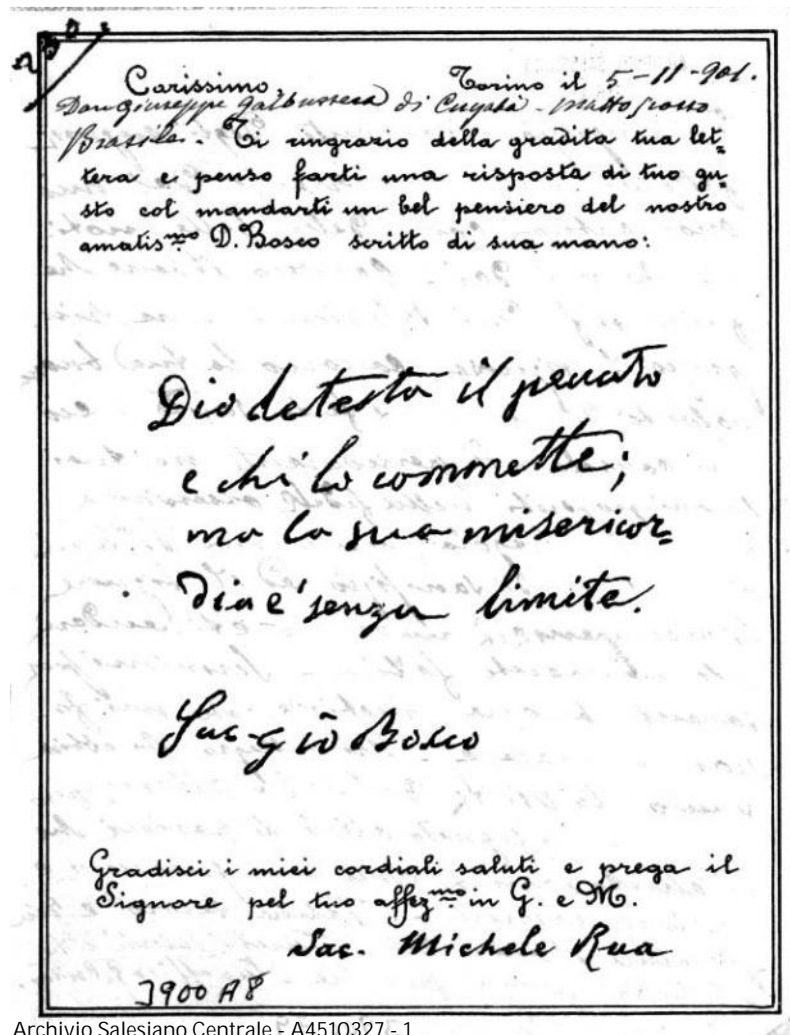 Carissimo, Torino il 5-11-901.
Don Giuseppe Galbussera di Cuyabà - Matto grosso
Brasile. Ti ringrazio della gradita tua let=
tera e penso farti una risposta di tuo gu=
sto col mandarti un bel pensiero del nostro
amatis.mo D. Bosco scritto di sua mano:
Dio detesta il peccato
e chi lo commette;
ma la sua misericor=
dia e' senza limite.
Sac. Gio Bosco
Gradisci i miei cordiali saluti e prega il
Signore pel tuo affez.mo in G. e M.
Sac. Michele Rua
3900 A8
Archivio Salesiano Centrale - A4510327 - 1